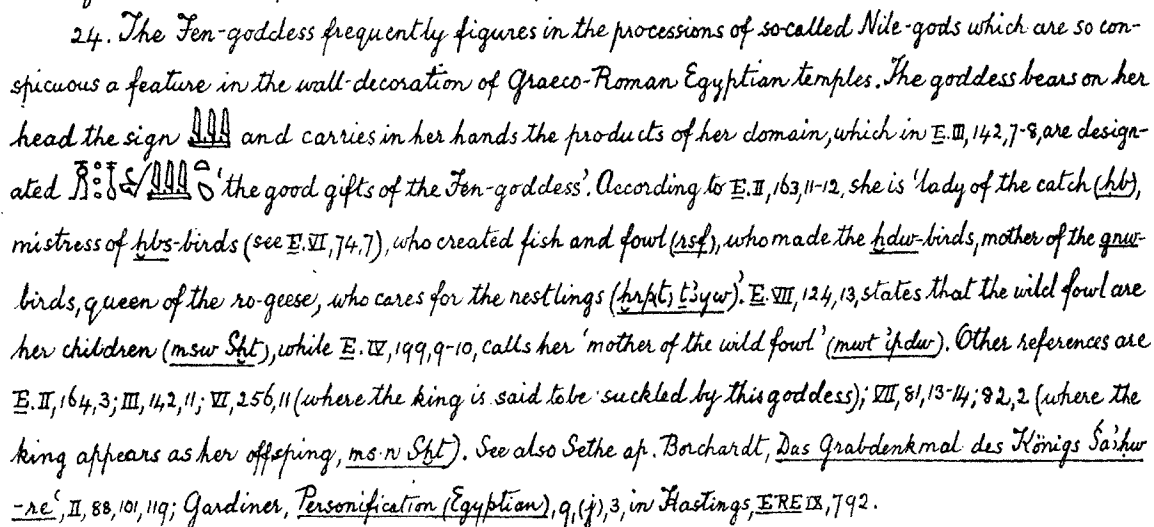 24. The Fen-goddess frequently figures in the processions of so-called Nile-gods which are so con-
spicuous a feature in the wall-decoration of Graeco-Roman Egyptian temples. The goddess bears on her
head the sign and carries in her hands the products of her domain, which in E.III, 142, 7-8, are design-
ated 'the good gifts of the Fen-goddess'. According to E.II, 163, 11-12, she is 'lady of the catch (ḥb),
mistress of ḫbs-birds (see E.VI, 74, 7), who created fish and fowl (rsf), who made the ḥḏw-birds, mother of the gnw-
birds, queen of the ro-geese, who cares for the nestlings'. E.VII, 124, 13, states that the wild fowl are
her children (msw Sḫt), while E.IV, 199, 9-10, calls her 'mother of the wild fowl' (mwt ꜣpdw). Other references are
E.II, 164, 3; III, 142, 11; VI, 256, 11 (where the king is said to be suckled by this goddess); VII, 81, 13-14; 82, 2 (where the
king appears as her offsping, ms·n Sḫt). See also Sethe ap. Borchardt, Das Grabdenkmal des Königs Śaꜣḥu
-reꜥ, II, 88, 101, 119; Gardiner, Personification (Egyptian), 9, (j), 3, in Hastings, ERE IX, 792.